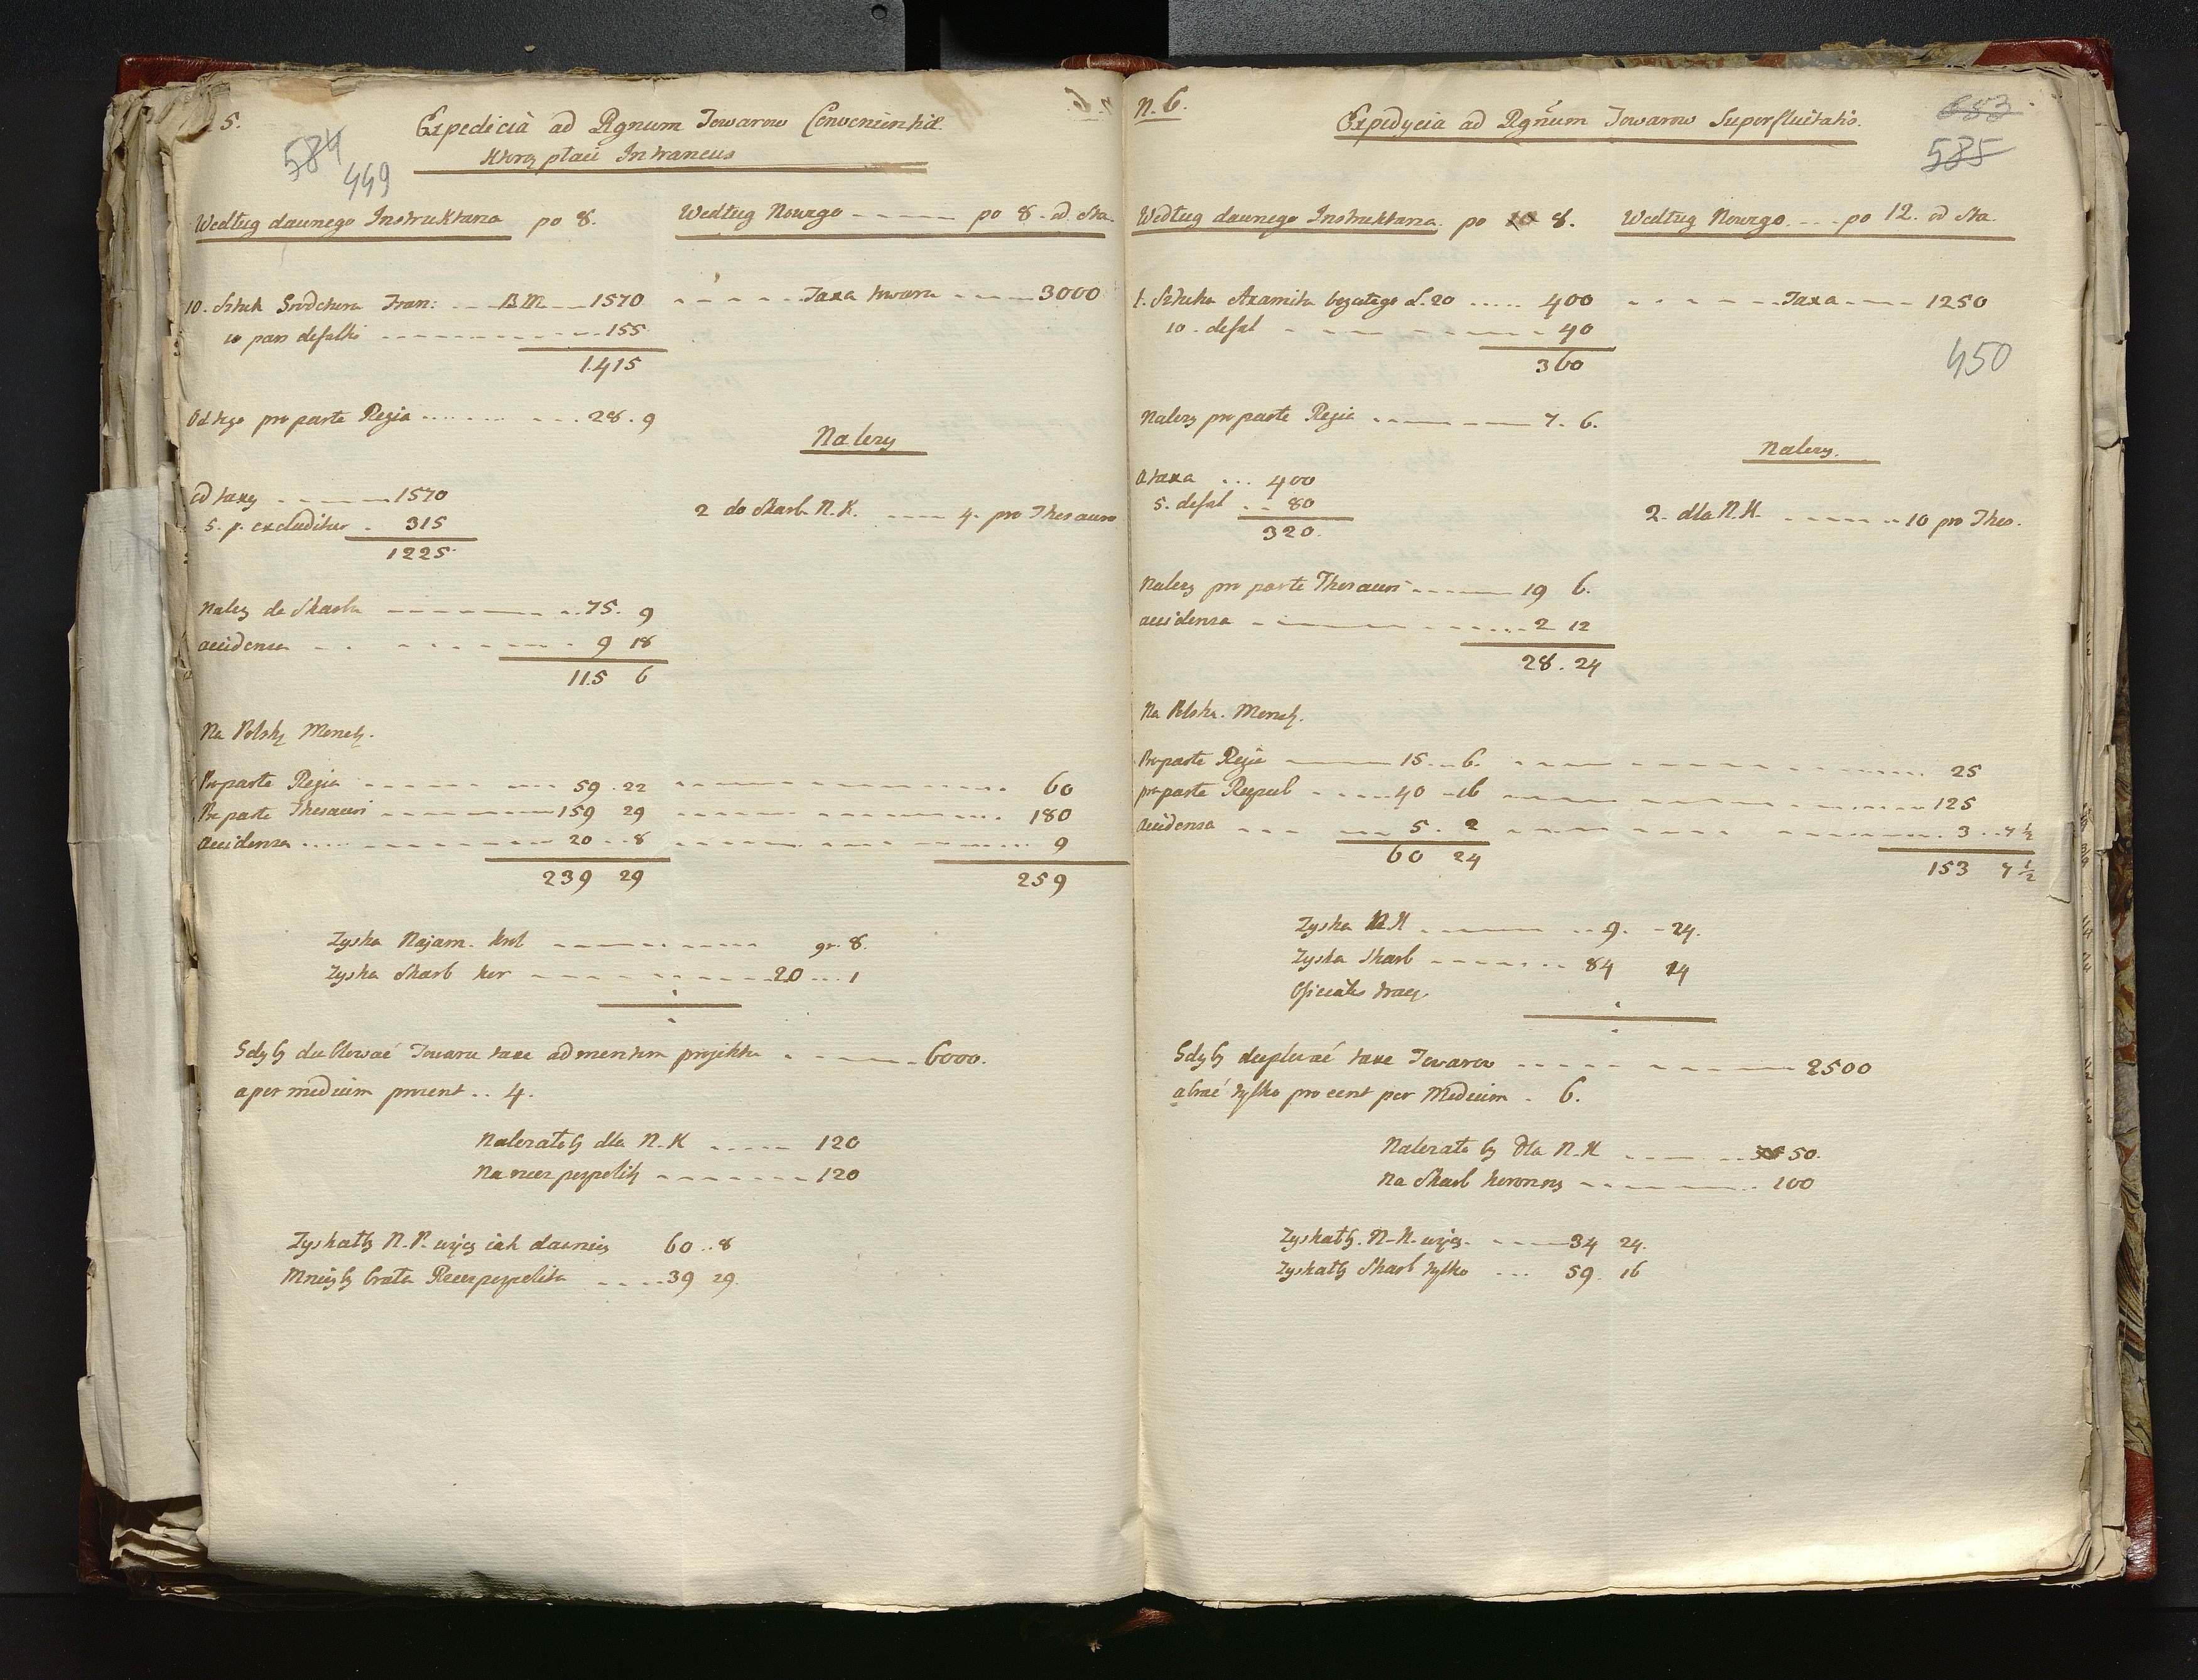 5.
584
449
Expedicia ad Rgnum Towarow Convenientiæ
ktory płaci Intraneus
Według dawnego Instruktarza po 8.
Według Nowego po 8. od sta.
10. Sztuk Grodetura Fran: B.M. 1570
Taxa towaru 3000
10 pars defalki 155
1415
Od tego pro parte Regia 28. 9
Należy
od taxy 1570
5. p. excluditur 315
1225
2 do Skarb. N. K. 4. pro Thesauro
należ do Skarbu 75. 9
accidensa 9 18
115 6
Na Polską Monetę.
Pro parte Regia 59. 22 60
Pro parte Thesauri 159 29 180
Accidensa 20 8 9
239 29 259
Zyska Najam. krol gr. 8.
Zyska Skarb kor 20 1
Gdyby dublować Towaru taxe ad mentem projektu 6000.
a per medium procent 4.
Należałoby dla N. K 120
Na rzeczpospolitę 120
Zyskałby N. P. więcey iak dawniey 60 8
Mnieyby brała Rzeczpospolita 39 29.
N. 6.
Expedycia ad Rgnum Towarow Superfluitatis.
683
585
Według dawnego Instruktarza po 8.
Według Nowego po 12. od sta.
1. Sztuka Axamitu bogatego Ł. 20 400
Taxa 1250
10. defal 40
360
450
Należy pro parte Regia 7. 6.
Należy.
A taxa 400
5. defal 80
320.
2. dla N. K. 10 pro Thes.
Należy pro parte Thesauri 19 6.
accidensa 2 12
28. 24
Na Polską. Monetę.
Pro parte Regia 15. 6. 25
pro parte Reipub 40 16 125
Accidensa 5. 2 3 7 1/2
60 24 153 7 1/2
Zyska N. K 9. 24.
Zyska Skarb 84 14
Oficialis traci
Gdyby duplować taxe Towarow 2500
a brać tylko procent per Medium 6.
Należało by Dla N. K 50.
Na Skarb koronny 100
Zyskałby. N. K. więcey. 34 24.
Zyskałby Skarb tylko 59. 16